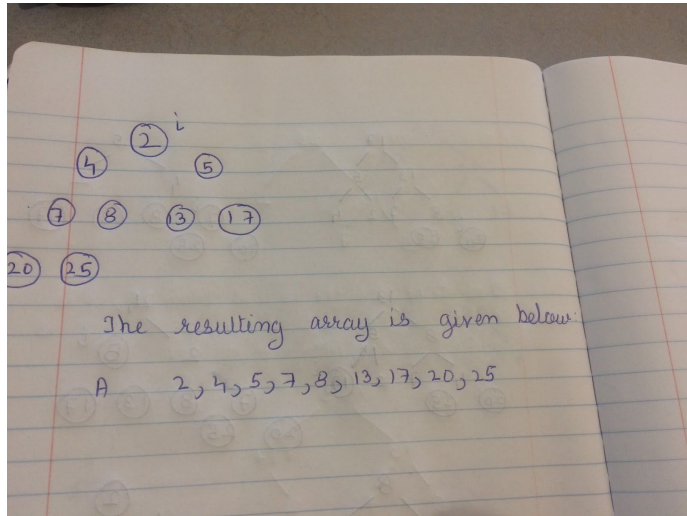 2 i
4 5
7 8 13 17
20 25
The resulting array is given below:
A 2, 4, 5, 7, 8, 13, 17, 20, 25